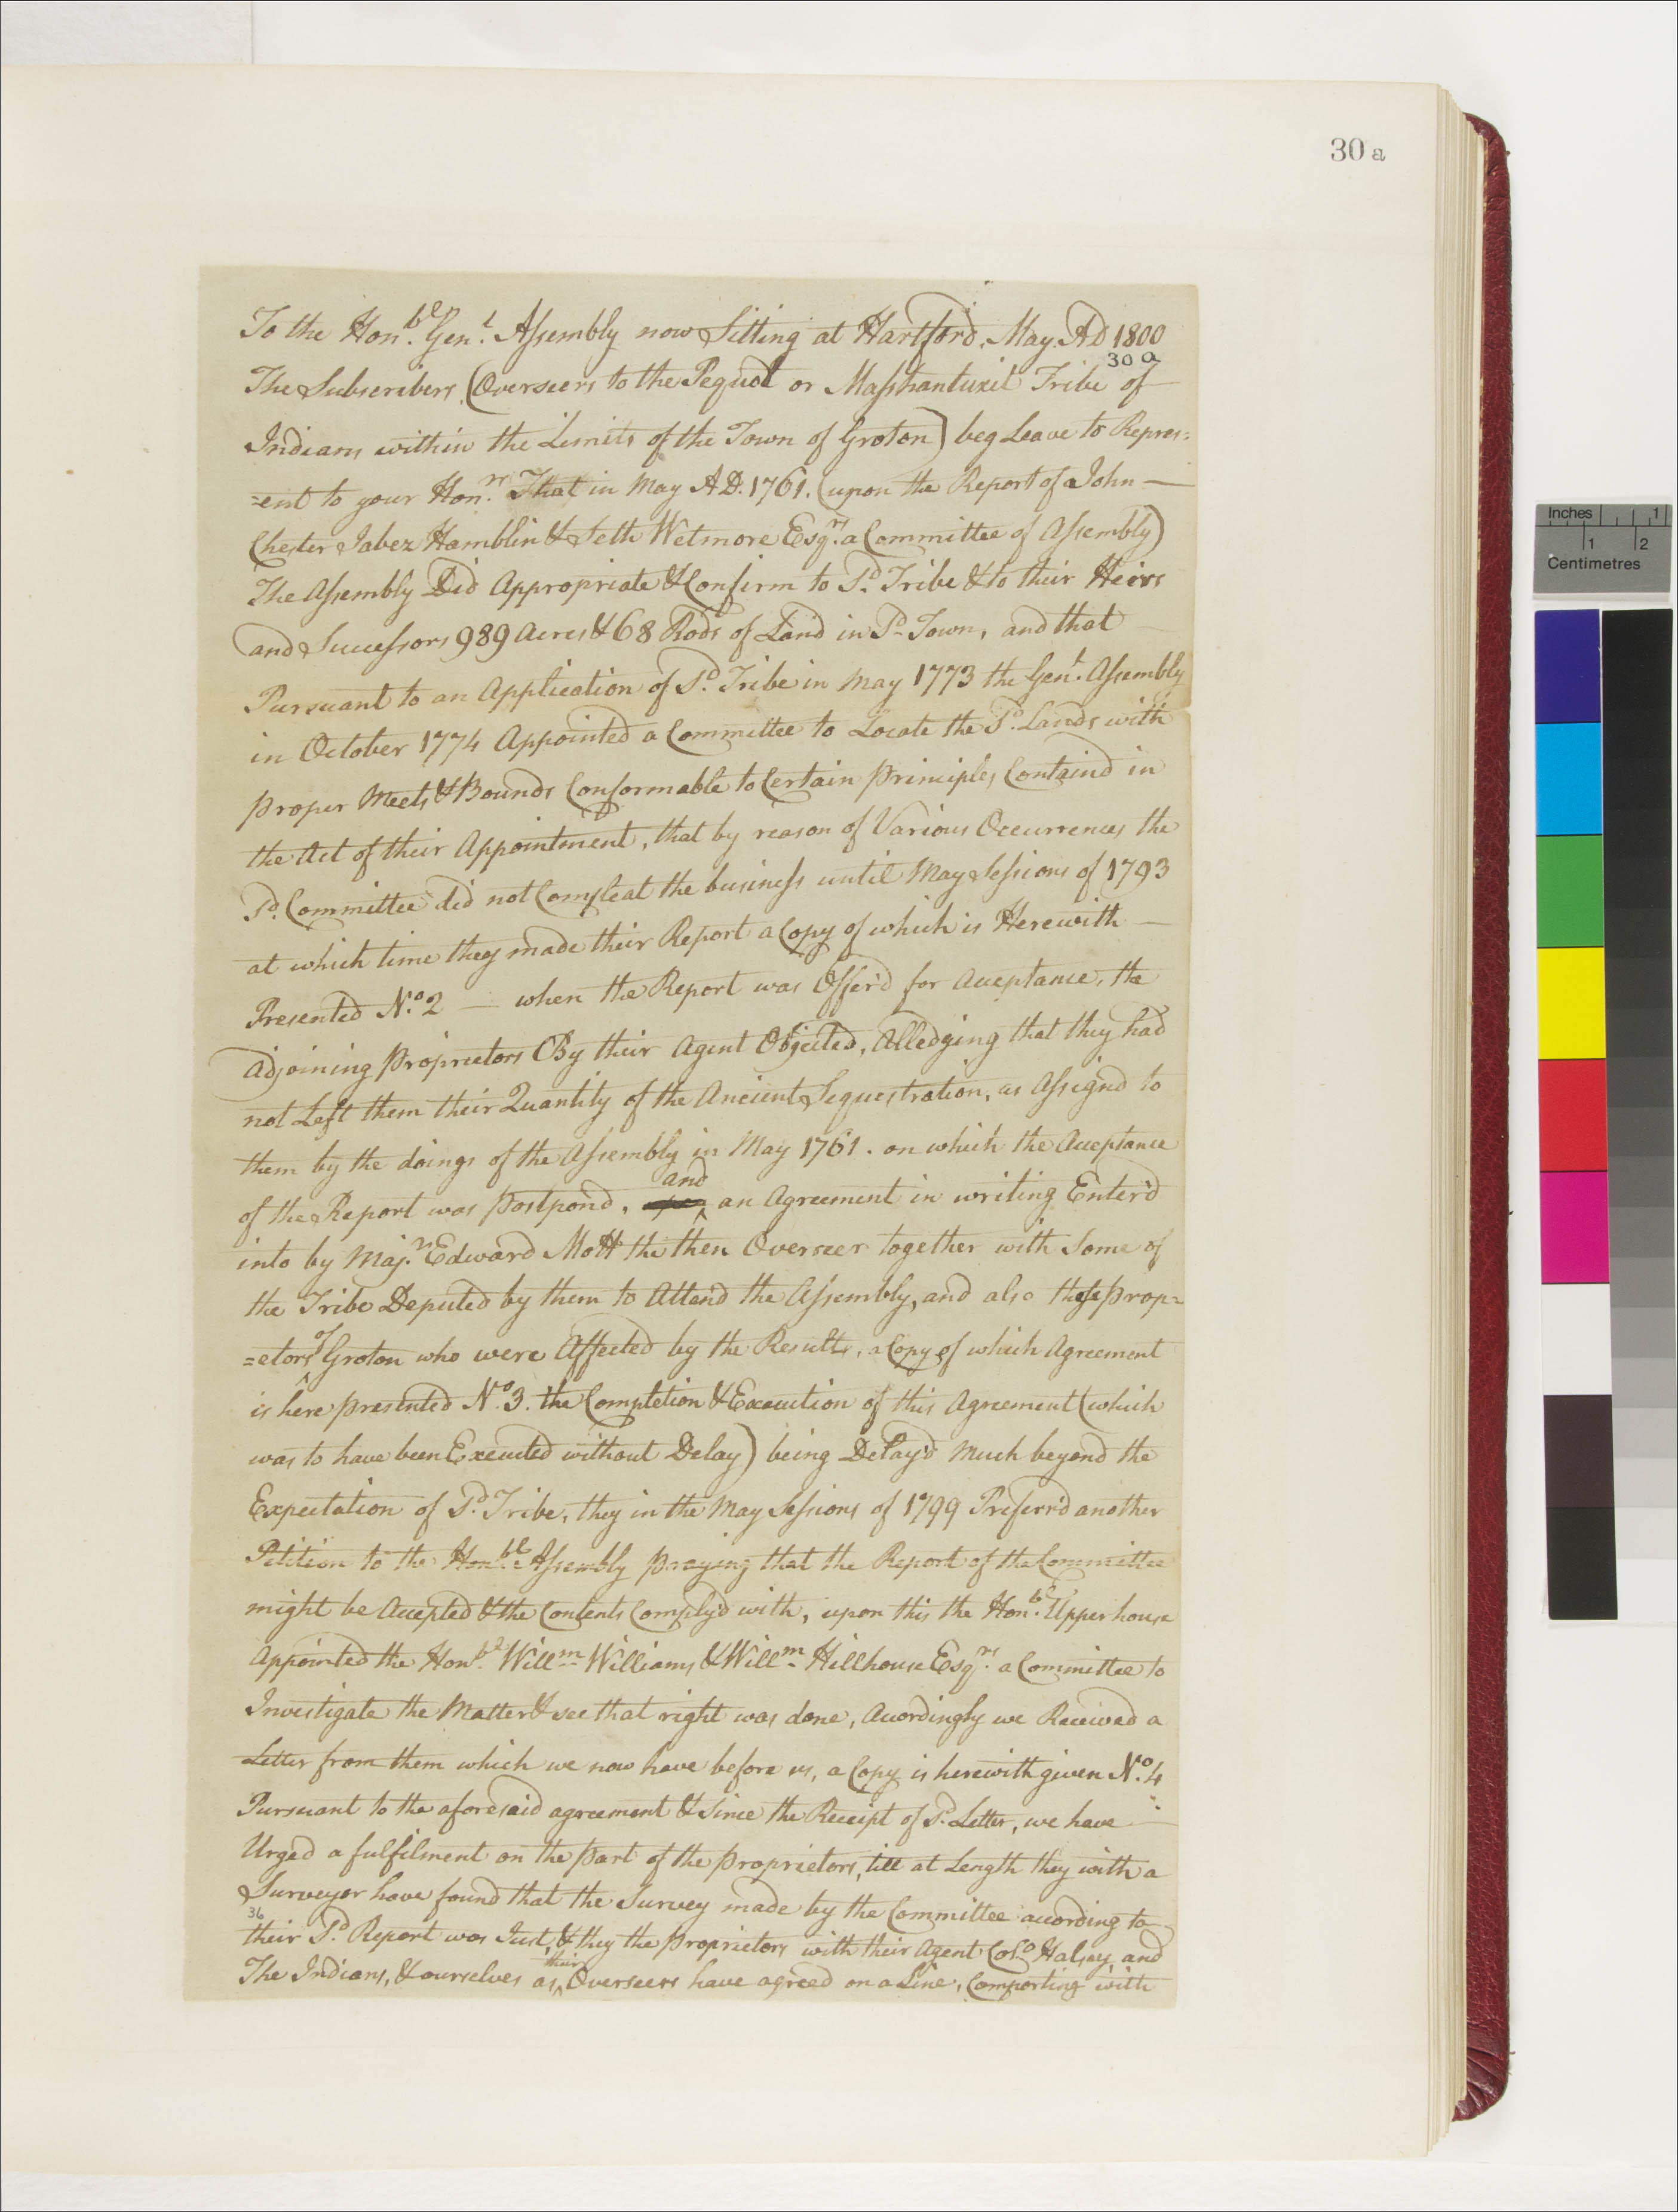 30 a
To the Hon.ble Gen.l Assembly now Sitting at Hartford. May. AD 1800
30 a
The Subscribers (Overseers to the Pequot or Mashantuxit Tribe of
Indians within the Limits of the Town of Groton) beg Leave to Repres=
=ent to your Hon.rs That in May A.D. 1761. (upon the Report of John
Chester Jabez Hamblin & Seth Wetmore Esq.rs a Committee of Assembly)
The Assembly Did Appropriate & Confirm to S.d Tribe & to their Heirs
and Successors 989 Acres & 68 Rods of Land in S.d Town, and that
Pursuant to an Application of S.d Tribe in May 1773 the Gen.l Assembly
in October 1774 Appointed a Committee to Locate the S.d Lands with
proper Meets & Bounds Conformable to Certain principles Containd in
the Act of their Appointment, that by reason of Various Occurrences the
S.d Committee did not Compleat the business until May Sessions of 1793
at which time they made their Report a Copy of which is Herewith
Presented N.o 2 — when the Report was Offer'd for Acceptance, the
adjoining proprietors By their Agent Objected, Alledging that they had
not Left them their Quantity of the Ancient Sequestration, as Assignd to
them by the doings of the Assembly in May 1761. on which the Acceptance
of the Report was postpond, and an Agreement in writing Enter'd
into by Maj.r Edward Mott the then Overseer together with Some of
the Tribe Deputed by them to Attend the Assembly, and also those prop=
=etors of Groton who were Affected by the Result, a Copy of which Agreement
is here presented N.o 3. the Completion & Execution of this Agreement (which
was to have been Executed without Delay) being Delay'd Much beyond the
Expectation of S.d Tribe, they in the May Sessions of 1799 Preferr'd another
Petition to the Hon.ble Assembly praying that the Report of the Committee
might be Accepted & the Contents Comply'd with, upon this the Hon.ble Upper house
Appointed the Hon.ble Will.m Williams & Will.m Hillhouse Esq.rs a Committee to
Investigate the Matter & see that right was done, Accordingly we Received a
Letter from them which we now have before us, a Copy is herewith given N.o 4
Pursuant to the aforesaid agreement & Since the Receipt of S.d Letter, we have
Urged a fulfilment on the part of the proprietors, till at Length they with a
Surveyor have found that the Survey made by the Committee according to
36
their S.d Report was Just, & they the proprietors with their Agent Col.o Halsey, and
The Indians, & ourselves as their Overseers have agreed on a Line, Comporting with
Inches 1
1 2
Centimetres